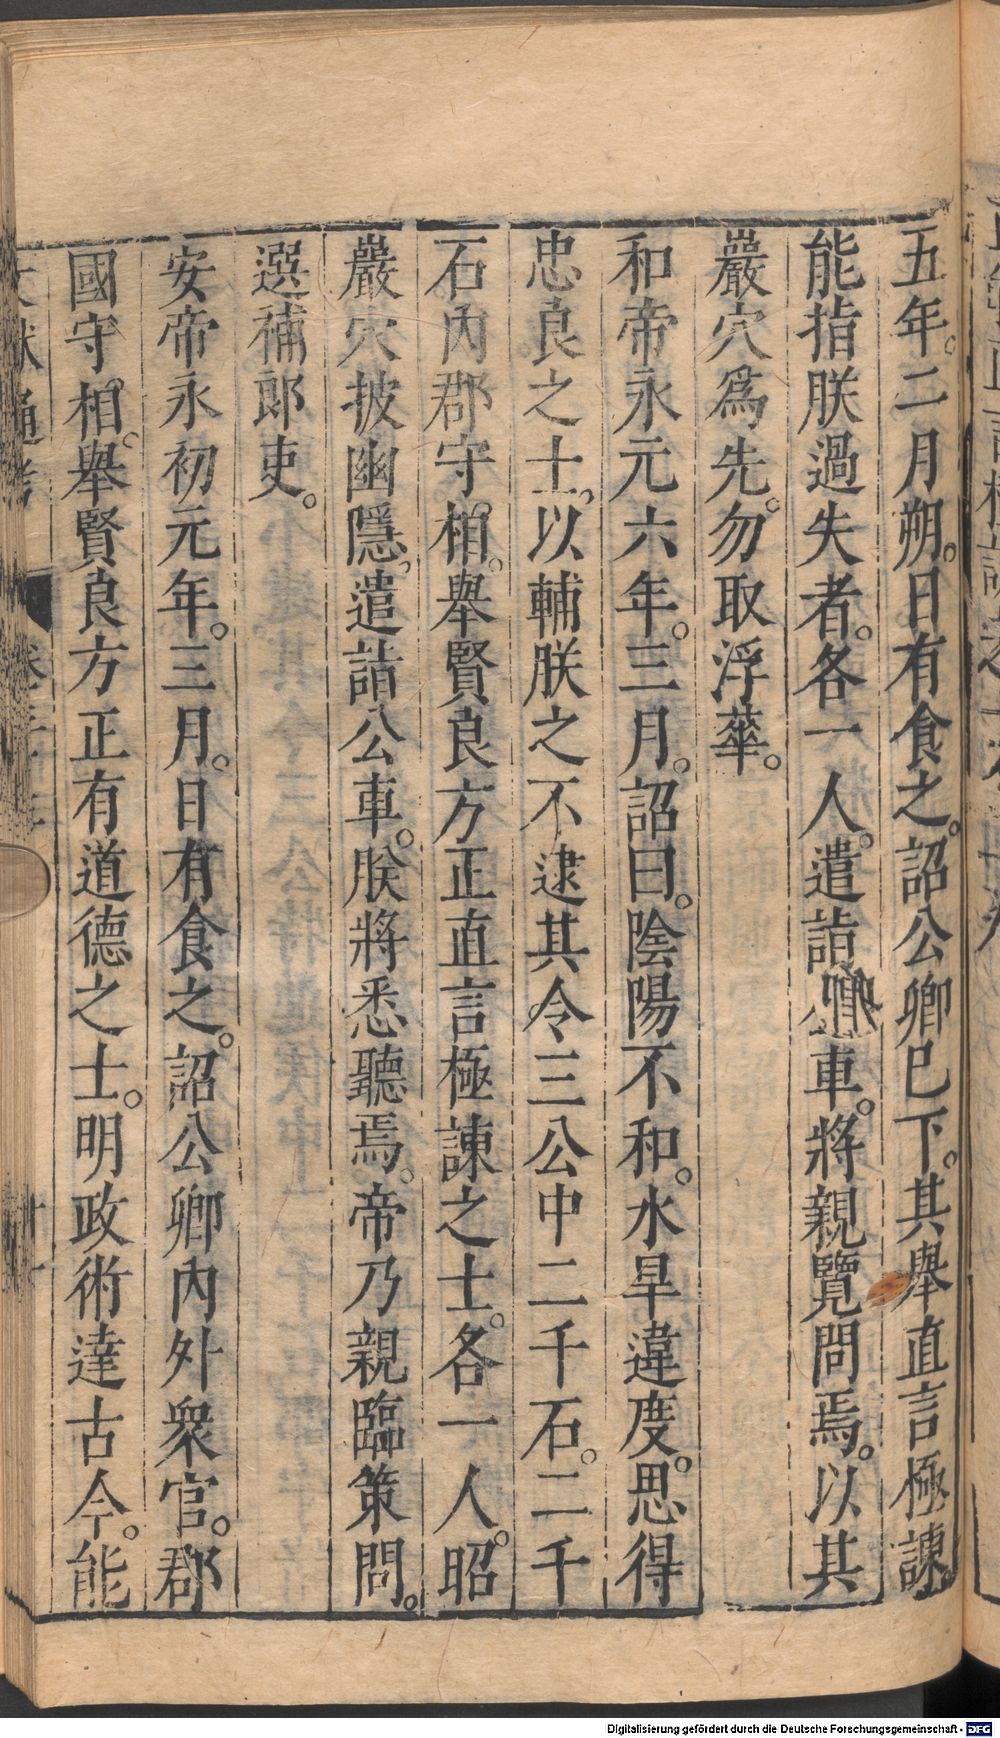 五年。二月朔。日有食之。詔公卿巳下。其舉直言極諫。
能指朕過失者。各一人。遣詣公車。將親覽問焉。以其
巖穴爲先。勿取浮華。
和帝永元六年。三月。詔曰。陰陽不和。水旱違度。思得
忠良之士。以輔朕之不逮其令三公中二千石。二千
石內郡守。相。舉賢良方正直言極諫之士。各一人。昭
巖穴披幽隱。遣詣公車。朕將悉聽焉。帝乃親臨策問。
選補郎吏。
安帝永初元年。三月。日有食之。詔公卿內外衆官。郡
國守。相。舉賢良方正有道德之士。明政術達古今。能
Digitalisierung gefördert durch die Deutsche Forschungsgemeinschaft - DFG